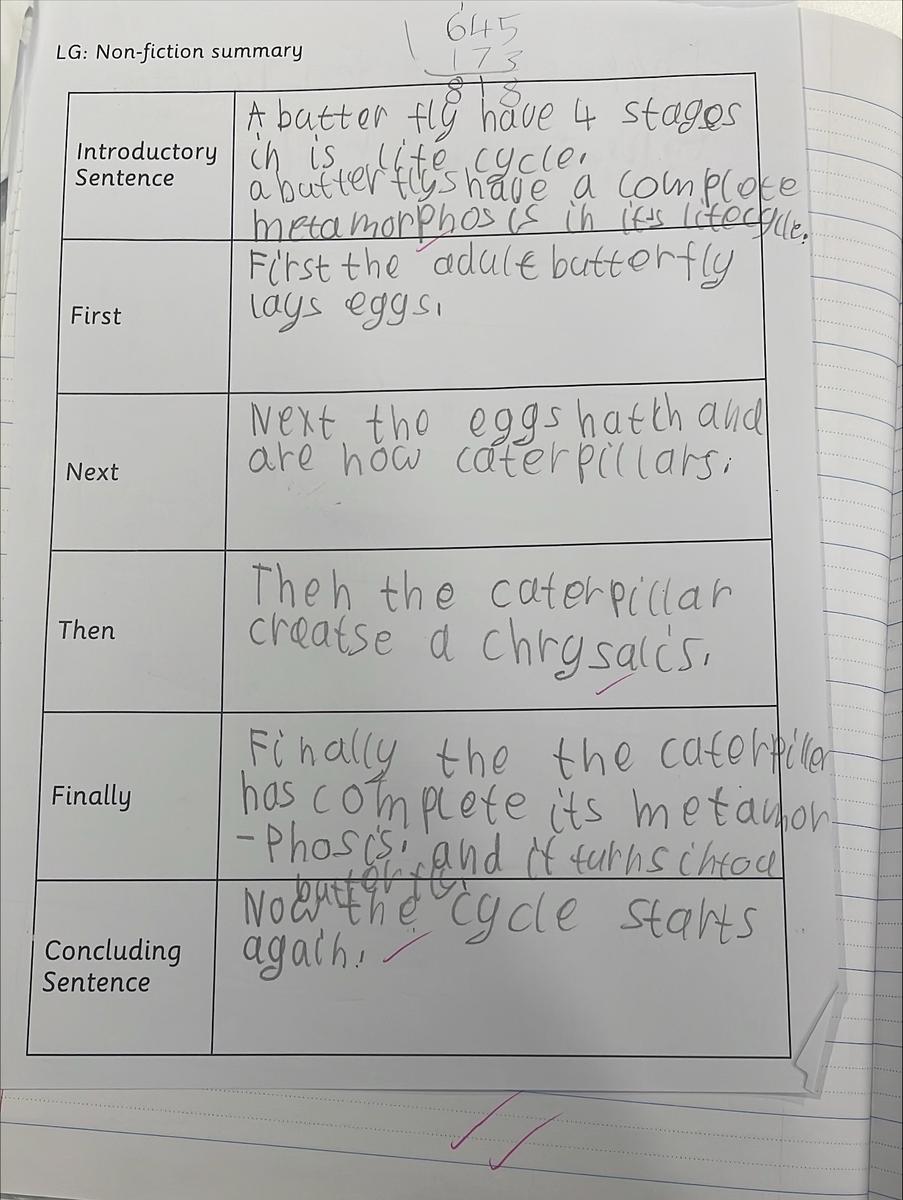 LG: Non-fiction summary
645
173
818
Introductory
Sentence
A batter fly have 4 stages
in is life cycle.
a butterflys have a complete
metamorphosis in it's lifecycle.
First
First the adult butterfly
lays eggs.
Next
Next the eggs hatch and
are now caterpillars.
Then
Then the caterpillar
creatse a chrysalis.
Finally
Finally the the caterpiller
has complete its metamor
-phosis. and it turns into a
butterfly.
Concluding
Sentence
Now the cycle starts
again.